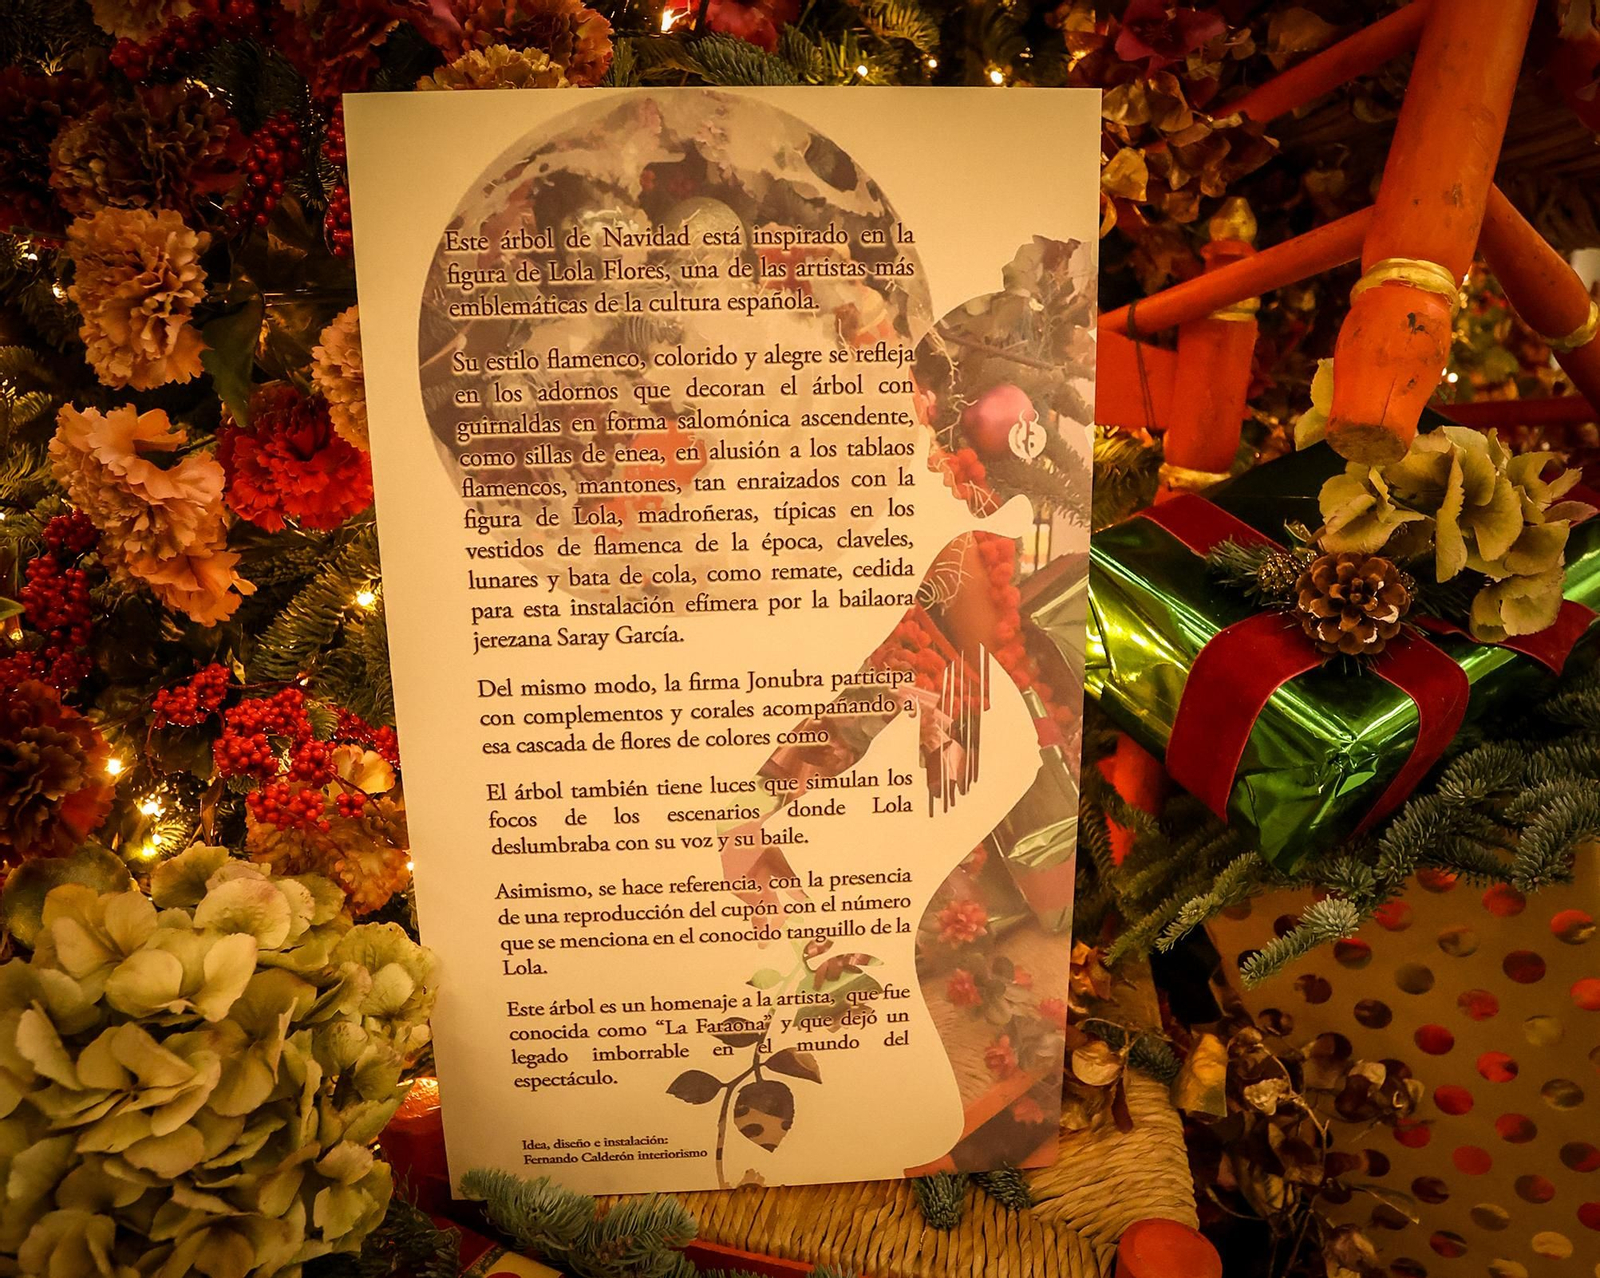 Este árbol de Navidad está inspirado en la
figura de Lola Flores, una de las artistas más
emblemáticas de la cultura española.
Su estilo flamenco, colorido y alegre se refleja
en los adornos que decoran el árbol con
guirnaldas en forma salomónica ascendente,
como sillas de enea, en alusión a los tablaos
flamencos, mantones, tan enraizados con la
figura de Lola, madroñeras, típicas en los
vestidos de flamenca de la época, claveles,
lunares y bata de cola, como remate, cedida
para esta instalación efímera por la bailaora
jerezana Saray García.
Del mismo modo, la firma Jonubra participa
con complementos y corales acompañando a
esa cascada de flores de colores como
El árbol también tiene luces que simulan los
focos de los escenarios donde Lola
deslumbraba con su voz y su baile.
Asimismo, se hace referencia, con la presencia
de una reproducción del cupón con el número
que se menciona en el conocido tanguillo de la
Lola.
Este árbol es un homenaje a la artista, que fue
conocida como “La Faraona” y que dejó un
legado imborrable en el mundo del
espectáculo.
Idea, diseño e instalación:
Fernando Calderón interiorismo